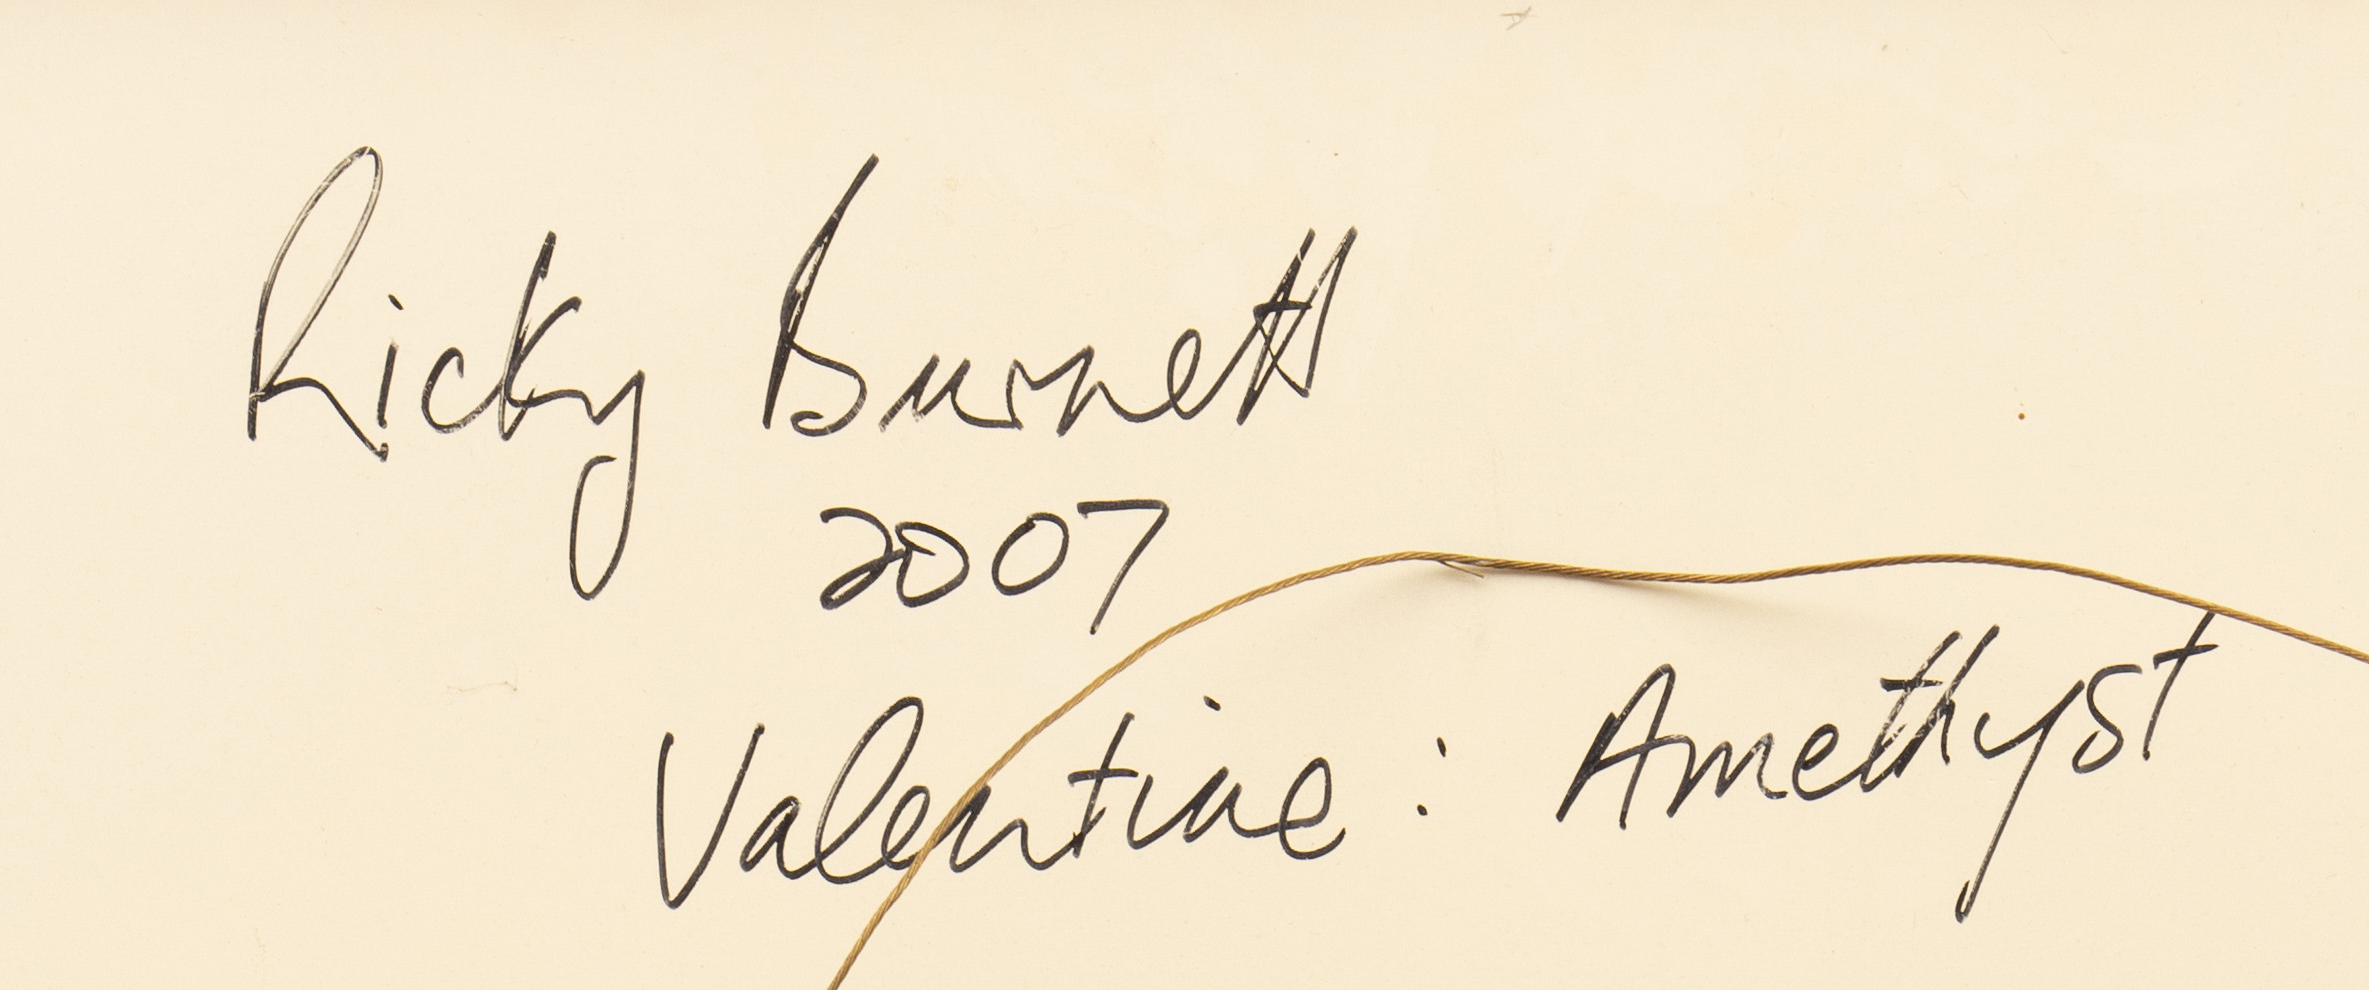 Ricky Burnett
2007
Valentine : Amethyst